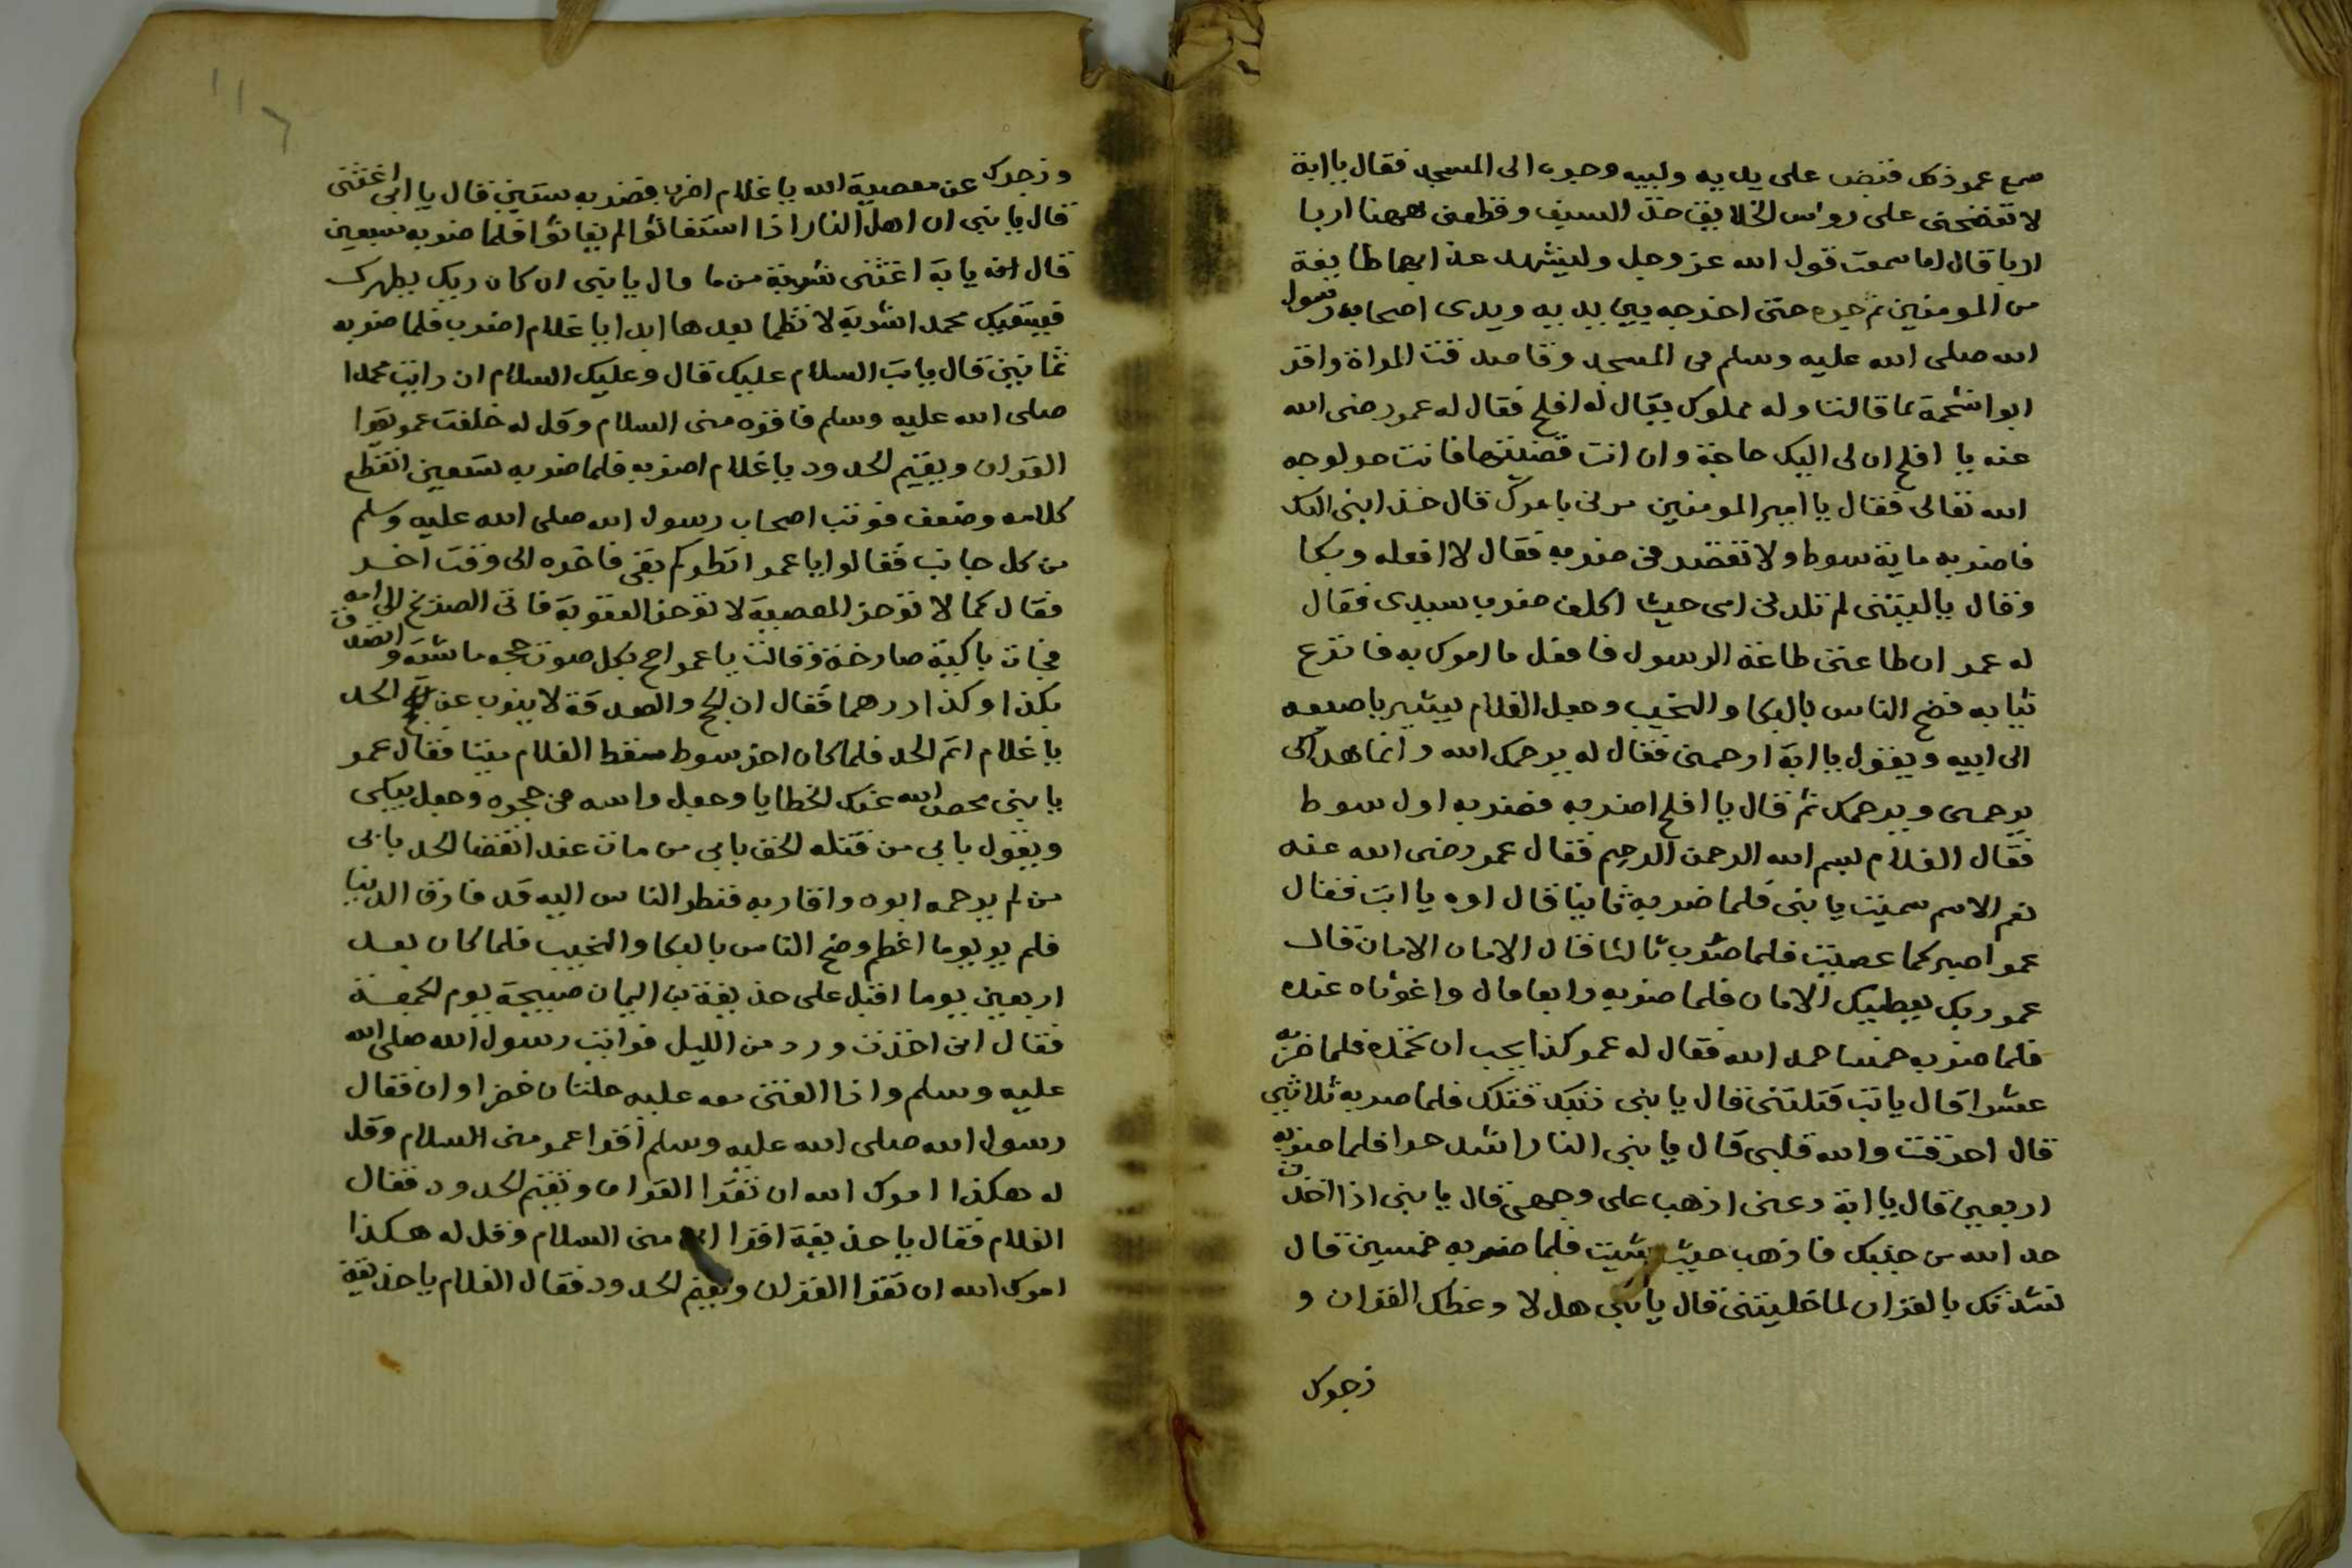 سمع عمر ذلك قبض على يديه ولببه وجره الى المسجد فقال يا ابة
لا تفضحنى على رواس الخلايق خذ السيف وقطعنى ههنا اربا
اربا قال اما سمعت قول الله عز وجل وليشهد عذابهما طايفة
من المومنين ثم جره حتى اخرجه بين يديه ويدى اصحاب رسول
الله صلى الله عليه وسلم فى المسجد وقا صدقت المراة واقر
ابوا شحمة بما قالت وله مملوك يقال له افلح فقال له عمر رضى الله
عنه يا افلح ان لى اليك حاجة وان انت قضيتها فانت حر لوجه
الله تعالى فقال يا امير المومنين مرنى بامرك قال خذ ابنى اليك
فاضربه ماية سوط ولا تقصر فى ضربه فقال لا افعله وبكا
وقال يا ليتنى لم تلدنى امى حيث اكلف ضرب سيدى فقال
له عمر ان طاعتى طاعة الرسول فافعل ما امرك به فانزع
ثيابه فضج الناس بالبكا والنحيب وجعل الغلام يشير باصبعه
الى ابيه ويقول يا ابة ارحمنى فقال له يرحمك الله وانما هذا كى
يرحمنى ويرحمك ثم قال يا افلح اضربه فضربه اول سوط
فقال الغلام بسم الله الرحمن الرحيم فقال عمر رضى الله عنه
نعم الاسم سميت يا بنى فلما ضربه ثانيا قال اوه يا ابت فقال
عمر اصبر كما عصيت فلما ضرب ثالثا قال الامان الامان قال
عمر ربك يعطيك الامان فلما ضربه رابعا قال واغوثاه عنده
فلما ضربه خمسا حمد الله فقال له عمر كذا يجب ان تحمده فلما ضربه
عشرا قال يا ابت قتلتنى قال يا بنى ذنبك قتلك فلما ضربه ثلاثين
قال احرقت والله قلبى قال يا بنى النار اشد حرا فلما ضربه
اربعين قال يا ابة دعنى اذهب على وجهى قال يا بنى اذا اخذت
حد الله من جنبك فاذهب حيث شيت فلما ضربه خمسين قال
نشدتك بالقران لما خليتنى قال يا بنى هل لا وعظك القران و
زجرك
وزجرك عن معصية الله يا غلام اضرب فضربه ستين قال يا ابى اغثنى
قال يا بنى ان اهل النار اذا استغاثوا لم يغاثوا فلما ضربه سبعين
قال يا ابة اغثنى شربة من ما قال يا بنى ان كان ربك يطهرك
فيسقيك محمد شربة لا تظما بعدها ابدا يا غلام اضرب فلما ضربه
ثمانين قال يا ابت السلام عليك قال وعليك السلام ان رايت محمدا
صلى الله عليه وسلم فاقره منى السلام وقل له خلفت عمر يقرا
القران ويقيم الحدود يا غلام اضربه فلما ضربه تسعين انقطع
كلامه وضعف فوثب اصحاب رسول الله صلى الله عليه وسلم
من كل جانب فقالوا يا عمر انظر كم بقى فاخره الى وقت اخر
فقال كما لا توخر المعصية لا توخر العقوبة فاتى الصريخ الى امه
فجات باكية صارخة وقالت يا عمر احج بكل صوت حجه ماشية واتصدق
بكذا وكذا درهما فقال ان الحج والصدقة لا ينوب عن الحد
يا غلام اتم الحد فلما كان اخر سوط سقط الغلام ميتا فقال عمر
يا بنى محص الله عنك الخطايا وجعل راسه فى حجره وجعل يبكى
ويقول بابى من قتله الحق بابى من مات عند انقضا الحد بابى
من لم يرحمه ابوه واقاربه فنظر الناس اليه قد فارق الدنيا
فلم ير يوما اعظم وضج الناس بالبكا والنحيب فلما كان بعد
اربعين يوما اقبل على حذيفة بن اليمان صبيحة يوم الجمعة
فقال انى اخذت ورد من الليل فرايت رسول الله صلى الله
عليه وسلم واذا الفتى معه عليه حلتان خضراوان فقال
رسول الله صلى الله عليه وسلم اقرا عمر منى السلام وقل
له هكذا امرك الله ان تقرا القران وتقيم الحدود فقال
الغلام فقال يا حذيفة اقرا ابى منى السلام وقل له هكذا
امرك الله ان تقرا القران وتقيم الحدود فقال الغلام يا حذيفة